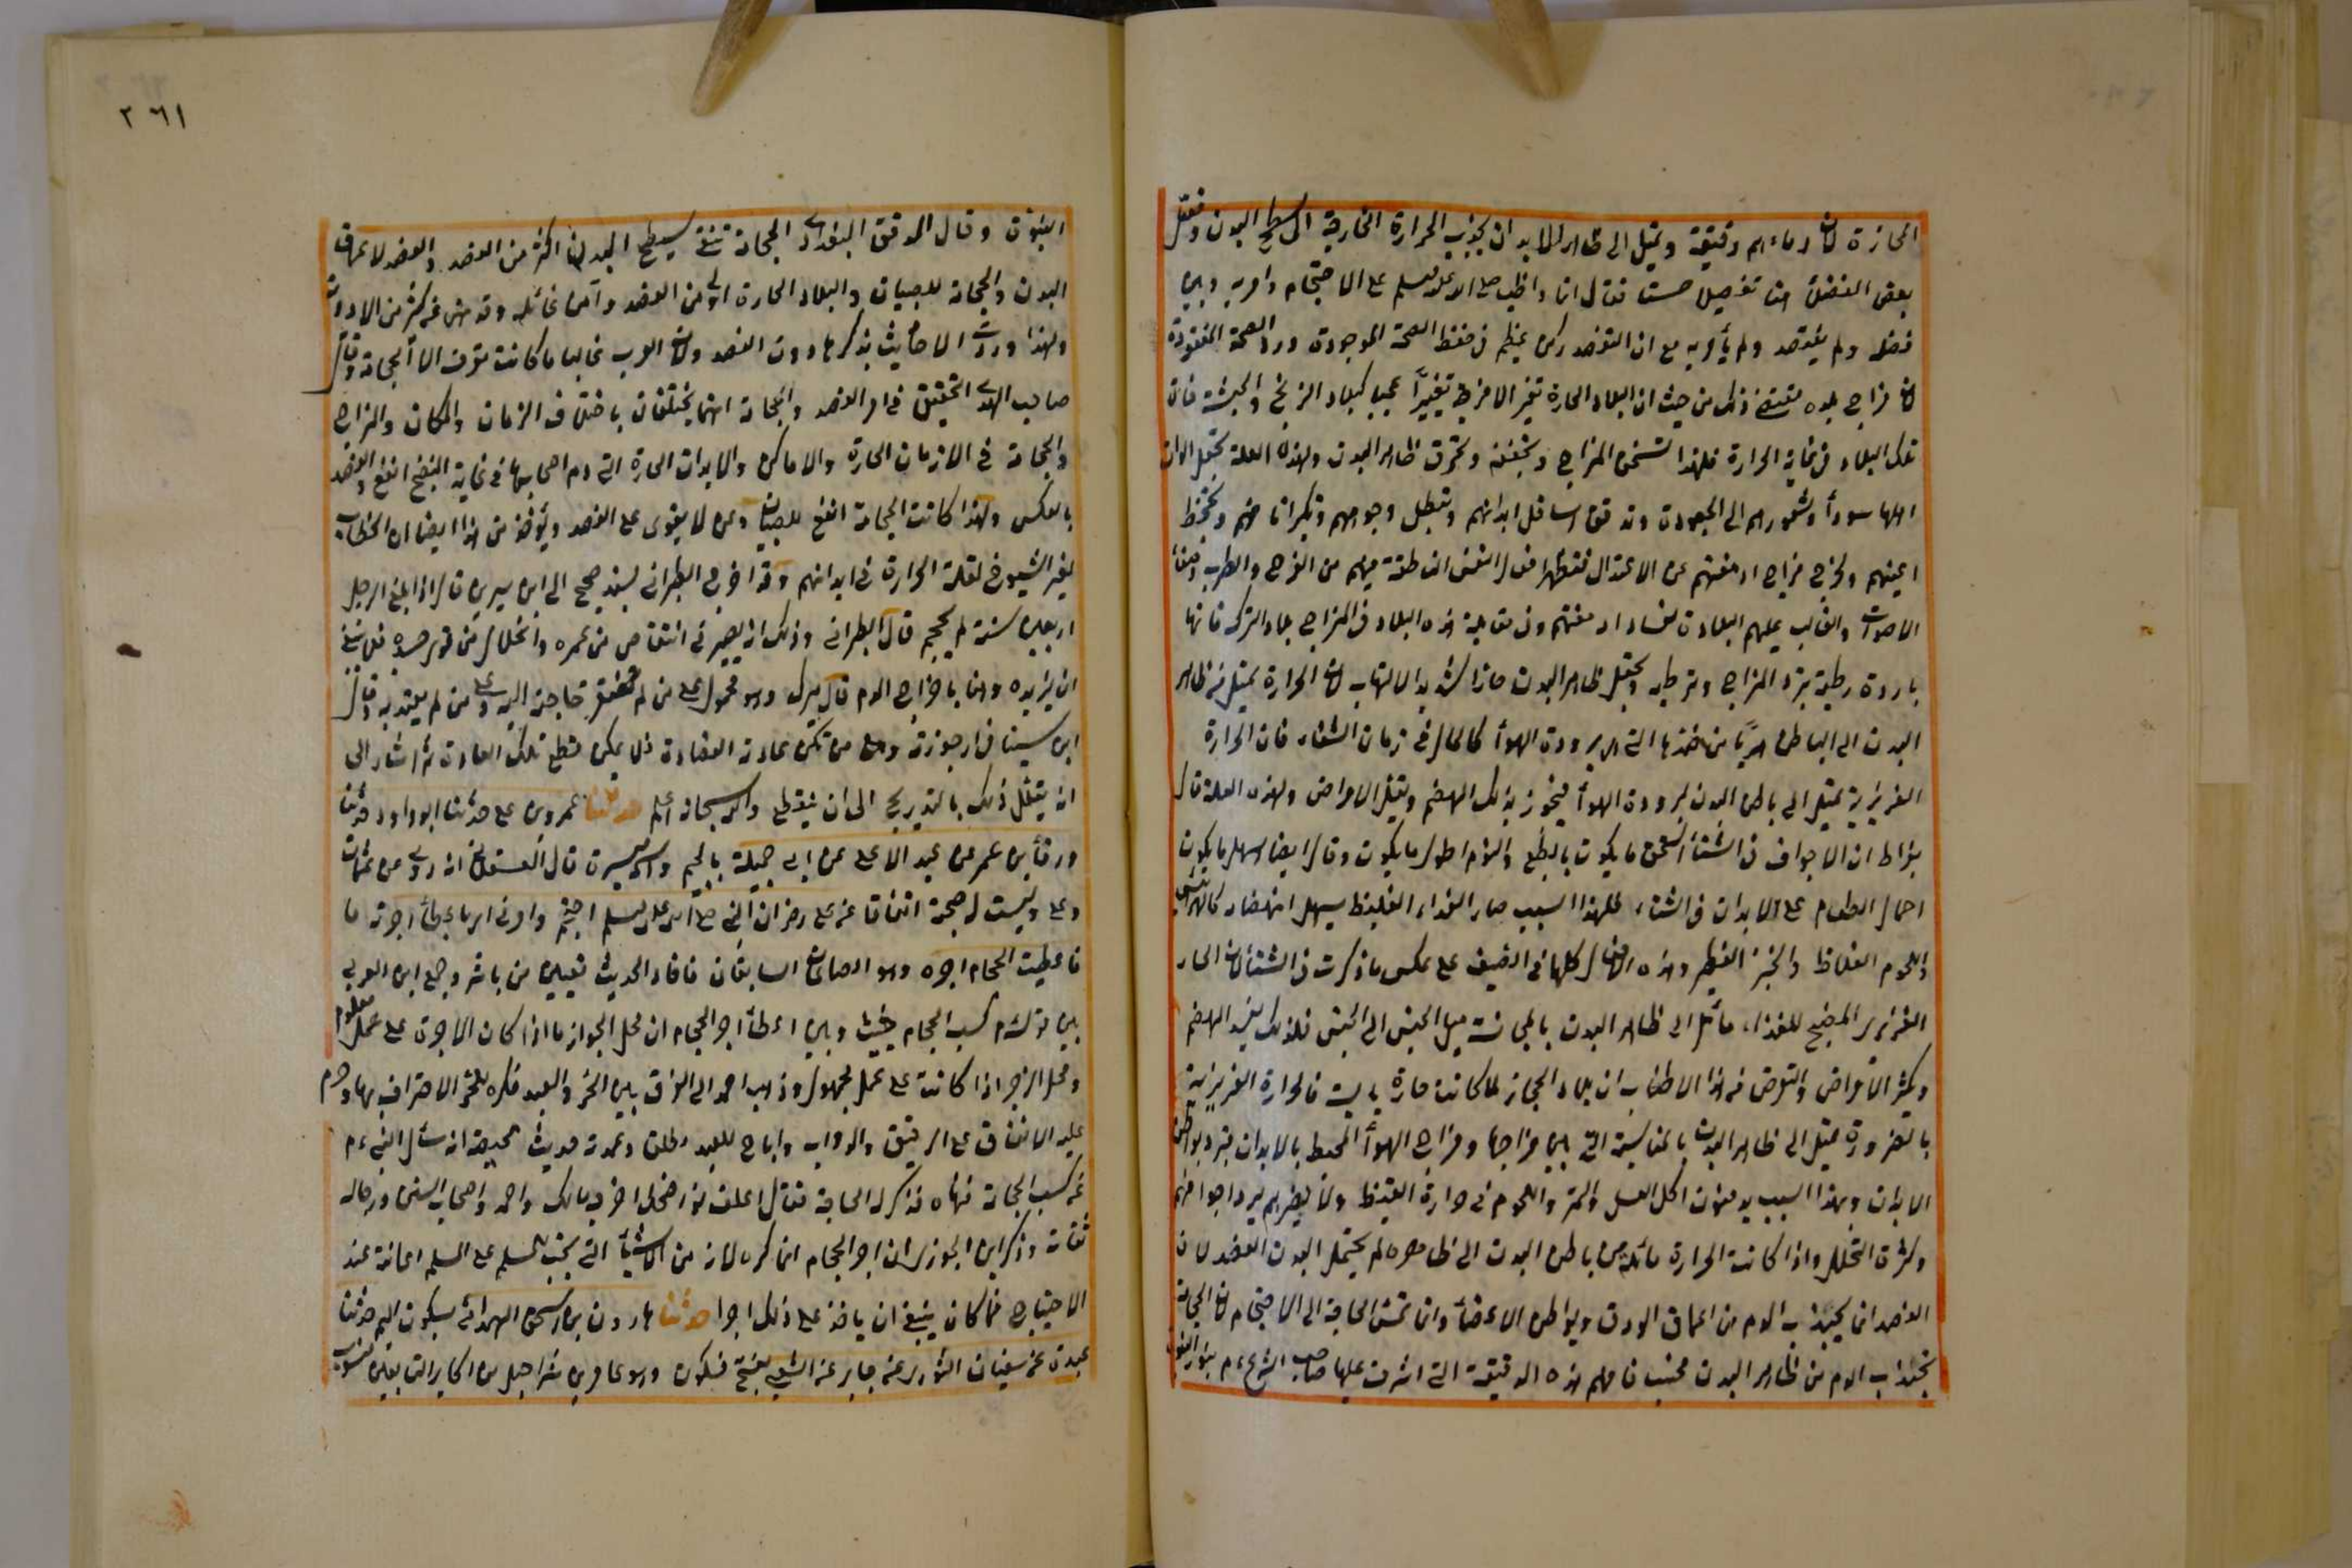 الحارة لان دماءهم رقيقة وتميل الى ظاهر الابدان بجذب الحرارة الخارجة الى سطح البدن وفصل
بعض الفضلاء هنا تفصيلا حسنا فقال انما واظب صلى الله عليه وسلم على الاحتجام وامر به وبين
فضله ولم يفتصد ولم يأمر به مع ان الفصد ركن عظيم في حفظ الصحة الموجودة ورد الصحة المفقودة
لان مزاج بلده يقتضي ذلك من حيث ان البلاد الحارة تغير الامزجة تغييرا عجيبا كبلاد الزنج والحبشة فان
تلك البلاد في غاية الحرارة فلهذا تسخن المزاج وتجففه وتحرق ظاهر البدن ولهذه العلة تجعل الوان
اهلها سوداء وشعورهم الى الجعودة وتدقق اسافل ابدانهم وتبطل وجوههم وتكبر انافهم وتجحظ
اعينهم وتخرج مزاج ادمغتهم عن الاعتدال فتظهر افعال النفس الناطقة فيهم من الفرح والطرب وصفاء
الاصوات والغالب عليهم البلادة لفساد ادمغتهم وفي مقابلة هذه البلاد في المزاج بلاد الترك فانها
باردة رطبة تبرد المزاج وترطبه وتجعل ظاهر البدن حارا شديد الالتهاب لان الحرارة تميل من ظاهر
البدن الى الباطن هربا من ضدها التي هي برودة الهواء كالحال في زمان الشتاء فان الحرارة
الغريزية تميل الى باطن البدن لبرودة الهواء فيجود بذلك الهضم وتقل الامراض ولهذه العلة قال
بقراط ان الاجواف في الشتاء اسخن ما يكون بالطبع والنوم اطول ما يكون وقال ايضا اسهل ما يكون
احتمال الطعام على الابدان في الشتاء فلهذا السبب صار الغذاء الغليظ يسهل انهضامه كالهرائس
واللحوم الغلاظ والخبز الفطير وهذه الافعال كلها في الصيف على عكس ما ذكرت في الشتاء لان الحار
الغريزي المنضج للغذاء مائل الى ظاهر البدن بالمجانسة ميل الجنس الى الجنس فلذلك يفسد الهضم
وتكثر الامراض والغرض في هذا الاطناب ان بلاد الحجاز لما كانت حارة يابسة فالحرارة الغريزية
بالضرورة تميل الى ظاهر البدن بالمناسبة التي بين مزاجها ومزاج الهواء المحيط بالابدان فتبرد بواطن
الابدان وبهذا السبب يدمنون اكل العسل والتمر واللحوم في حرارة القيظ ولا يضرهم لبرد اجوافهم
وكثرة التحلل واذا كانت الحرارة مائلة من باطن البدن الى ظاهره لم يحتمل البدن الفصد لان
الفصد انما يجتذب الدم من اعماق العروق وبواطن الاعضاء وانما تمس الحاجة الى الاحتجام لان الحجامة
تجتذب الدم من ظاهر البدن فحسب فافهم هذه الدقيقة التي اشرف عليها صاحب الشرع عم بنور النبوة
٢٦١
النبوة وقال الموفق البغدادي الحجامة تنقي سطح البدن اكثر من الفصد والفصد لاعماق
البدن والحجامة للصبيان والبلاد الحارة اولى من الفصد وآمن غائلة وقد يغني عن كثير من الادوية
ولهذا وردت الاحاديث بذكرها دون الفصد ولان العرب غالبا ما كانت تعرف الا الحجامة وقال
صاحب الهدى التحقيق في امر الفصد والحجامة انهما يختلفان باختلاف الزمان والمكان والمزاج
والحجامة في الازمان الحارة والاماكن والابدان الحارة التي دم اصحابها في غاية النضج انفع والفصد
بالعكس ولهذا كانت الحجامة انفع للصبيان ولمن لا يقوى على الفصد ويؤخذ من هذا ايضا ان الخطاب
لغير الشيوخ لقلة الحرارة في ابدانهم وقد اخرج الطبراني بسند صحيح الى ابن سيرين قال اذا بلغ الرجل
اربعين سنة لم يحتجم قال الطبراني وذلك انه يصير في انتقاص من عمره وانحلال من قوى جسده فلا ينبغي
ان يزيده وهنا باخراج الدم قال ميرك وهو محمول على من لم تتعين حاجته اليه وعلى من لم يعتد به وقال
ابن سينا في ارجوزته ومن تكن عادته الفصادة فلا يمكن قطع تلك العادة ثم اشار الى
انه يقلل ذلك بالتدريج الى ان ينقطع والله سبحانه اعلم حدثنا عمرو بن علي حدثنا ابو داود حدثنا
ورقاء بن عمر عن عبد الاعلى عن ابي جميلة بالجيم واسمه ميسرة قال العسقلاني انه روى عن عثمان
وعلي وليست له صحبة اتفاقا عن علي رضي ان النبي صلى الله عليه وسلم احتجم وامرني اي باعطاء اجرته
فاعطيت الحجام اجره وهو الصاعان السابقان فافاد الحديث تعيين من باشر وجمع ابن العربي
بين قوله عم كسب الحجام خبيث وبين اعطاء اجر الحجام ان محل الجواز ما اذا كان الاجرة على عمل معلوم
ومحل الزجر اذا كانت على عمل مجهول وذهب احمد الى الفرق بين الحر والعبد فكره للحر الاحتراف بها وحرم
عليه الانفاق على الرقيق والدواب واباح للعبد مطلقا وعمدته حديث محيصة انه سأل النبي عم
عن كسب الحجامة فنهاه فذكر له الحاجة فقال اعلف نواضحك اخرجه مالك واحمد واصحاب السنن ورجاله
ثقات وذكر ابن الجوزي ان اجر الحجام انما كره لانه من الاشياء التي تجب للمسلم على المسلم اعانة عند
الاحتياج فما كان ينبغي ان ياخذ على ذلك اجرا حدثنا هارون بن اسحق الهمداني بسكون الميم حدثنا
عبدة عن سفيان الثوري عن جابر عن الشعبي بفتح فسكون وهو عامر بن شراحيل من اكابر التابعين منسوب